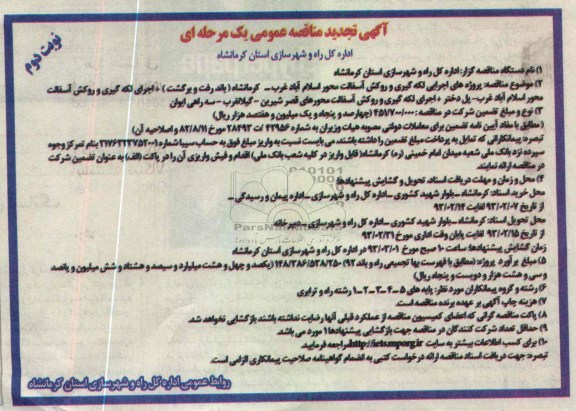 آگهی تجدید مناقصه عمومی یک مرحله ای
نوبت دوم
اداره کل راه و شهرسازی استان کرمانشاه
۱) نام دستگاه مناقصه گزار: اداره کل راه و شهرسازی استان کرمانشاه
۲) موضوع مناقصه: پروژه های اجرایی لکه گیری و روکش آسفالت محور اسلام آباد غرب - کرمانشاه (باند رفت و برگشت) + اجرای لکه گیری و روکش آسفالت
محور اسلام آباد غرب - پل دختر + اجرای لکه گیری و روکش آسفالت محورهای قصر شیرین - گیلانغرب - سه راهی ایوان
۳) نوع و مبلغ تضمین شرکت در مناقصه: ۴۵۱/۷۰۰/۰۰۰ (چهارصد و پنجاه و یک میلیون و هفتصد هزار ریال)
(مطابق با مفاد آیین نامه تضمین برای معاملات دولتی مصوبه هیات وزیران به شماره ۴۲۹۵۶/ت ۲۸۴۹۳ مورخ ۸۲/۸/۱۱ و اصلاحیه آن)
تبصره: پیمانکارانی که تمایل به پرداخت مبلغ تضمین را داشته باشند، می بایست نسبت به واریز مبلغ فوق به حساب سیبا شماره ۲۱۷۶۴۳۴۳۷۵۲۰۰۱ بنام تمرکز وجوه
سپرده نزد بانک ملی شعبه میدان امام خمینی (ره) کرمانشاه (قابل واریز در کلیه شعب بانک ملی) اقدام و فیش واریزی آن را در پاکت (الف) به عنوان تضمین شرکت
در مناقصه ارائه نمایند.
۴) محل و زمان و مهلت دریافت اسناد، تحویل و گشایش پیشنهادها:
محل خرید اسناد: کرمانشاه - بلوار شهید کشوری - اداره کل راه و شهرسازی - اداره پیمان و رسیدگی -
از تاریخ ۹۳/۰۲/۰۷ لغایت ۹۳/۰۲/۱۴
محل تحویل اسناد: کرمانشاه - بلوار شهید کشوری - اداره کل راه و شهرسازی - دبیرخانه
از تاریخ ۹۳/۰۲/۱۵ لغایت پایان وقت اداری مورخ ۹۳/۰۲/۳۱
زمان گشایش پیشنهادها: ساعت ۱۰ صبح مورخ ۹۳/۰۳/۰۱ در اداره کل راه و شهرسازی استان کرمانشاه
۵) مبلغ برآورد پروژه: (مطابق با فهرست بها تجمیعی راه و باند ۹۲) ۱۴۸/۳۸۶/۵۳۸/۲۵۰ (یکصد و چهل و هشت میلیارد و سیصد و هشتاد و شش میلیون و پانصد
و سی و هشت هزار و دویست و پنجاه ریال)
۶) رشته و گروه پیمانکاران مورد نظر: پایه های ۵-۴-۳-۲-۱ رشته راه و ترابری
۷) هزینه چاپ آگهی بر عهده برنده مناقصه است.
۸) پاکت مناقصه گرانی که اعضای کمیسیون مناقصه از عملکرد قبلی آنها رضایت نداشته باشند بازگشایی نخواهد شد.
۹) حداقل تعداد شرکت کنندگان در مناقصه جهت بازگشایی پیشنهادها ۱ مورد می باشد.
۱۰) برای کسب اطلاعات بیشتر به سایت http://iets.mporg.ir مراجعه فرمایید.
تبصره: جهت دریافت اسناد مناقصه ارائه درخواست کتبی به انضمام گواهینامه صلاحیت پیمانکاری الزامی است.
روابط عمومی اداره کل راه و شهرسازی استان کرمانشاه